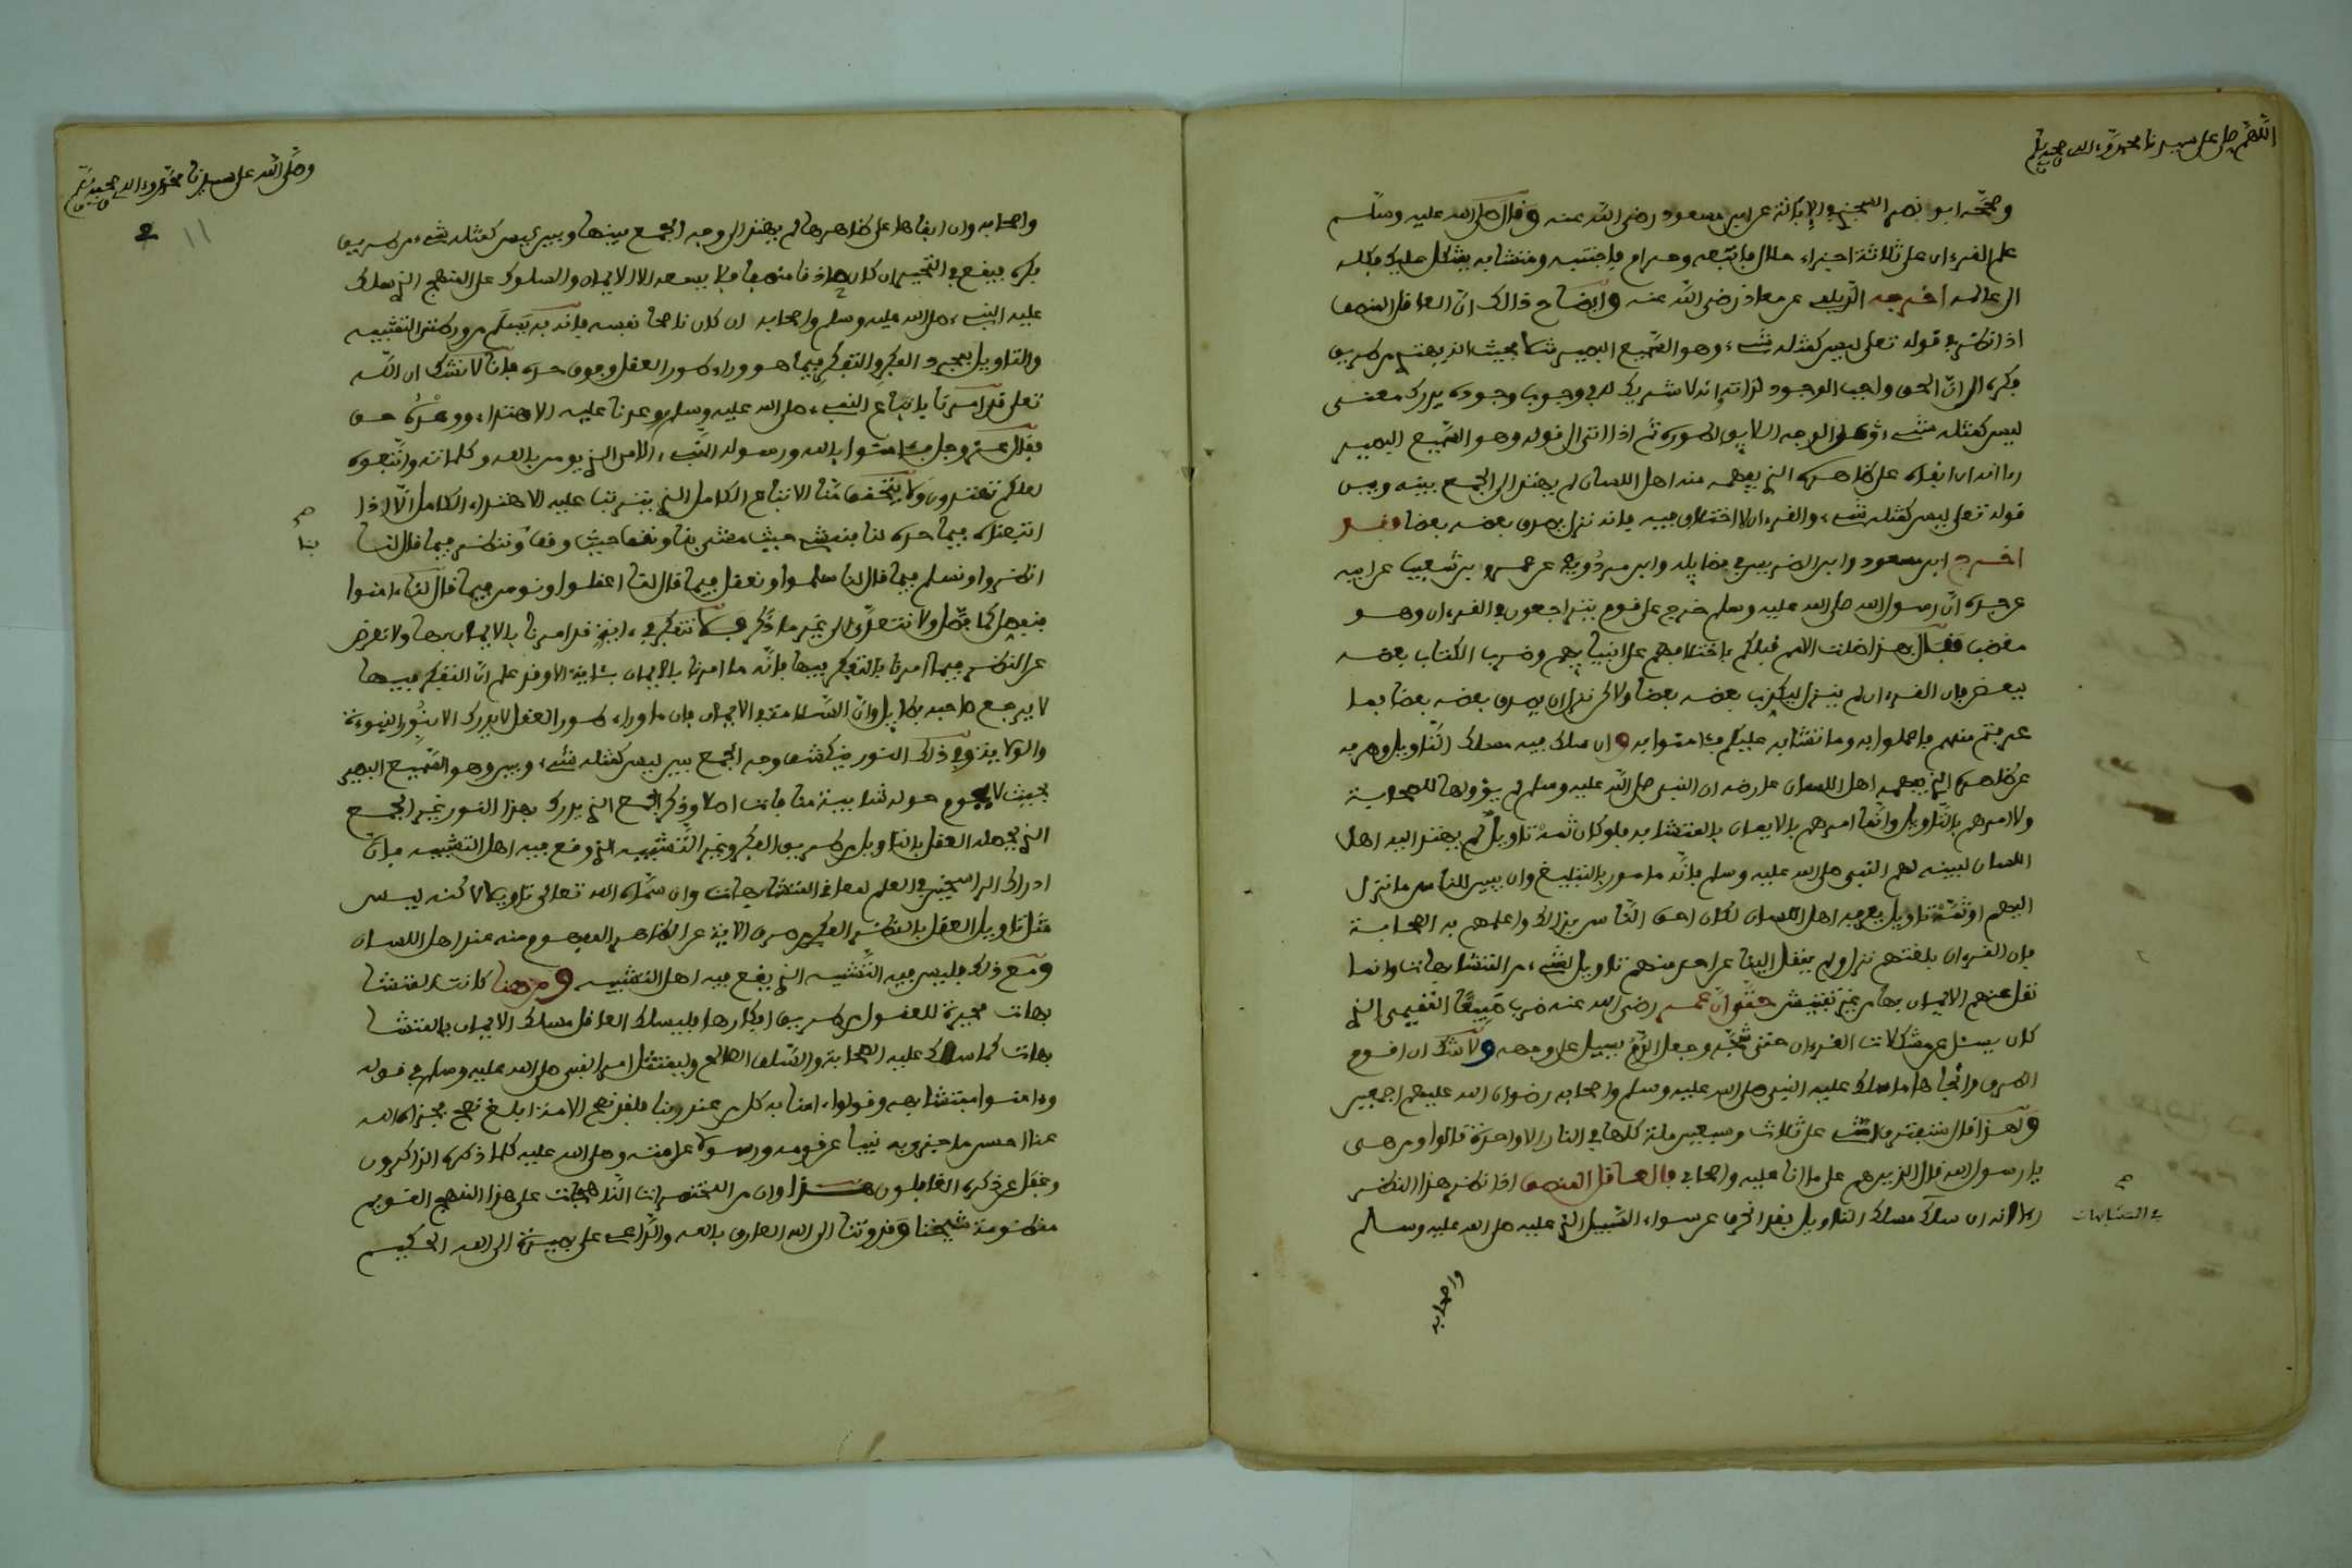 اللهم صل على سيدنا محمد وءاله وصحبه وسلم
وصححه ابو نصر السجزي في الإبانة عن ابن مسعود رضي الله عنه وقال صلى الله عليه وسلم
علم القرءان على ثلاثة اجزاء حلال فاتبعه وحرام فاجتنبه ومتشابه يشكل عليك فكله
الى عالمه اخرجه الديلمي عن معاذ رضي الله عنه وايضاح ذالك ان العاقل المنصف
اذا نظر في قوله تعلى ليس كمثله شيء وهو السميع البصير مثلا بحيث انه يهتدي من طريق
فكره الى ان الحق واجب الوجود لذاته انه لا شريك له في وجوب وجوده يدرك معنى
ليس كمثله شيء وهو الوجه اللايق لصوره ثم اذا اتى الى قوله وهو السميع البصير
راا انه ان ابقاه على ظاهره الذي يفهمه منه اهل اللسان لم يهتد الى الجمع بينه وبين
قوله تعلى ليس كمثله شيء والقرءان لا اختلاف فيه فانه نزل يصدق بعضه بعضا فقد
اخرج ابن سعد وابن الضريس في فضايله وابن مردويه عن عمرو بن شعيب عن ابيه
عن جده ان رسول الله صلى الله عليه وسلم خرج على قوم يتراجعون في القرءان وهو
مغضب فقال بهذا ضلت الامم قبلكم باختلافهم على انبيايهم وضرب الكتاب بعضه
ببعض فان القرءان لم ينزل ليكذب بعضه بعضا ولاكن نزل ان يصدق بعضه بعضا فما
عرفتم منه فاعملوا به وما تشابه عليكم فئامنوا به وان سلك فيه مسلك التاويل وصرفه
عن ظاهره الذي يفهمه اهل اللسان عارضه ان النبي صلى الله عليه وسلم لم يؤولها للصحابة
ولا امرهم بالتاويل وانما امرهم بالايمان بالمتشابه فلو كان ثمة تاويل لم يهتد اليه اهل
اللسان لبينه لهم النبي صلى الله عليه وسلم فانه مامور بالتبليغ وان يبين للناس ما نزل
اليهم او ثمة تاويل يعرفه اهل اللسان لكان احق الناس بذالك واعلمهم به الصحابة
فان القرءان بلغتهم نزل ولم ينقل الينا عن احد منهم تاويل لشيء من المتشابهات وانما
نقل عنهم الايمان بها من غير تفتيش حتى ان عمر رضي الله عنه ضرب صبيغا التميمي الذي
كان يسئل عن مشكلات القرءان حتى شجه وجعل الدم يسيل على وجهه ولا شك ان اقوم
الطرق وانجاها ما سلك عليه النبي صلى الله عليه وسلم واصحابه رضوان الله عليهم اجمعين
ولهذا قال ستفترق امتي على ثلاث وسبعين ملة كلها في النار الا واحدة قالوا ومن هي
يا رسول الله قال الذين هم على ما انا عليه واصحابي فالعاقل المنصف اذا نظر هذا النظر
راا انه ان سلك مسلك التاويل فقد انحرف عن سواء السبيل الذي عليه صلى الله عليه وسلم
في المتشابهات
واصحابه
وصلى الله على سيدنا محمد وءاله وصحبه وسلم
2 11
واصحابه وان ابقاها على ظاهرها لم يهتد الى وجه الجمع بينها وبين ليس كمثله شيء من طريق
فكره فيقع في التحير ان كان حاذقا منصفا فلا يسعه الا الايمان والسلوك على المنهج الذي سلك
عليه النبيء صلى الله عليه وسلم واصحابه ان كان ناصحا نفسه فانه به يسلم من ورطتي التشبيه
والتاويل بمجرد الفكر والتفكر فيما هو وراء طور العقل وفوق حده فانا لا نشك ان الله
تعلى قد امرنا باتباع النبيء صلى الله عليه وسلم ووعدنا عليه الاهتداء ووعده حق
فقال عز وجل فئامنوا بالله ورسوله النبيء الامي الذي يومن بالله وكلماته واتبعوه
لعلكم تهتدون ولا يتحقق منا الاتباع الكامل الذي يترتب عليه الاهتداء الكامل الا اذا
اتبعناه فيما حده لنا فنمشي حيث مشى بنا ونقف حيث وقف وننظر فيما قال لنا
بنا
انظروا ونسلم فيما قال لنا سلموا ونعقل فيما قال لنا اعقلوا ونومن فيما قال لنا ءامنوا
فنفصل كما فصل ولا نتعدى الى غير ما ذكر فلا نتفكر في ءاية قد امرنا بالايمان بها ولا نعرض
عن النظر فيما امرنا بالتفكر فيها فانه ما امرنا بالايمان بئاية الا وقد علم ان التفكر فيها
لا يرجع صاحبه بطايل وان السلامة في الايمان فان ما وراء طور العقل لا يدرك الا بنور النبوءة
والولاية وفي ذلك النور ينكشف وجه الجمع بين ليس كمثله شيء وبين وهو السميع البصير
بحيث لا يحوم حوله شايبة منافات اصلا وذكر الجمع الذي يدرك بهذا النور غير الجمع
الذي يجعله العقل بالتاويل من طريق الفكر وغير التشبيه الذي وقع فيه اهل التشبيه فان
ادراك الراسخين في العلم لمعاني المتشابهات وان سماه الله تعالى تاويلا لاكنه ليس
مثل تاويل العقل بالنظر الفكري صرف الاية عن الظاهر المفهوم منه عند اهل اللسان
ومع ذلك فليس فيه التشبيه الذي يقع فيه اهل التشبيه ومن هنا كانت المتشا
بهات محيرة للعقول من طريق افكارها فليسلك العاقل مسلك الايمان بالمتشا
بهات كما سلك عليه الصحابة والسلف الصالح وليمتثل امر النبي صلى الله عليه وسلم في قوله
وءامنوا بمتشابهه وقولوا ءامنا به كل من عند ربنا فلقد نصح الامة ابلغ نصح فجزاه الله
عنا احسن ما جزى به نبيا عن قومه ورسولا عن امته وصلى الله عليه كلما ذكره الذاكرون
وغفل عن ذكره الغافلون هذا وان من المختصرات الناهجات على هذا النهج القويم
منظومة شيخنا وقدوتنا الى الله العارف بالله والداعي على بصيرة الى الله الحكيم